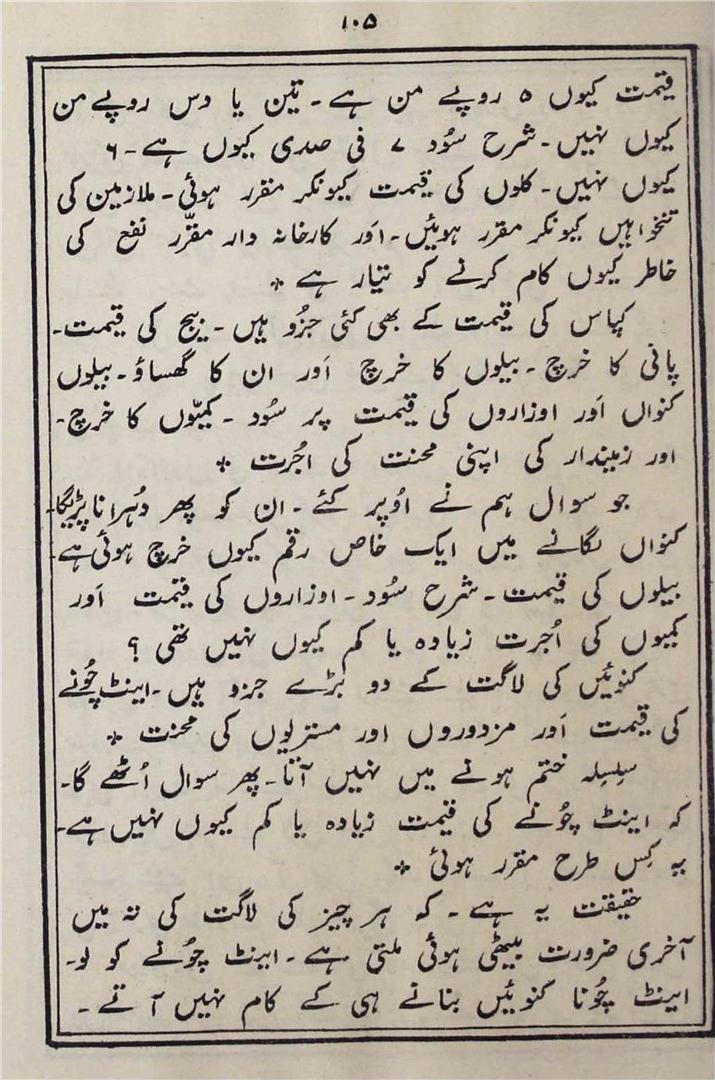 ۱۰۵
قیمت کیوں ۵ روپے من ہے۔ تین یا دس روپے من
کیوں نہیں۔ شرح سُود ۷ فی صدی کیوں ہے۔ ۶
کیوں نہیں۔ کلوں کی قیمت کیونکر مقرر ہوئی۔ ملازمین کی
تنخواہیں کیونکر مقرر ہوئیں۔ اَور کارخانہ دار مقرّر نفع کی
خاطر کیوں کام کرنے کو تیار ہے ٭
کپاس کی قیمت کے بھی کئی جزُو ہیں۔ بیج کی قیمت۔
پانی کا خرچ۔ بیلوں کا خرچ اَور ان کا گھساؤ۔ بیلوں
کنواں اَور اوزاروں کی قیمت پر سُود۔ کمیّوں کا خرچ۔
اور زمیندار کی اپنی محنت کی اُجرت ٭
جو سوال ہم نے اُوپر کئے۔ ان کو پھر دُہرانا پڑیگا۔
کنواں لگانے میں ایک خاص رقم کیوں خرچ ہوئی ہے۔
بیلوں کی قیمت۔ شرح سُود۔ اوزاروں کی قیمت اَور
کمیوں کی اُجرت زیادہ یا کم کیوں نہیں تھی ؟
کنوئیں کی لاگت کے دو بڑے جزو ہیں۔ اینٹ چُونے
کی قیمت اَور مزدوروں اور مستریوں کی محنت ٭
سِلسِلہ ختم ہونے میں نہیں آتا۔ پھر سوال اُٹھے گا۔
کہ اینٹ چُونے کی قیمت زیادہ یا کم کیوں نہیں ہے۔
یہ کِس طرح مقرر ہوئی ٭
حقیقت یہ ہے۔ کہ ہر چیز کی لاگت کی تہ میں
آخری ضرورت بیٹھی ہوئی ملتی ہے۔ اینٹ چُونے کو لو۔
اینٹ چُونا کنوئیں بنانے ہی کے کام نہیں آتے۔